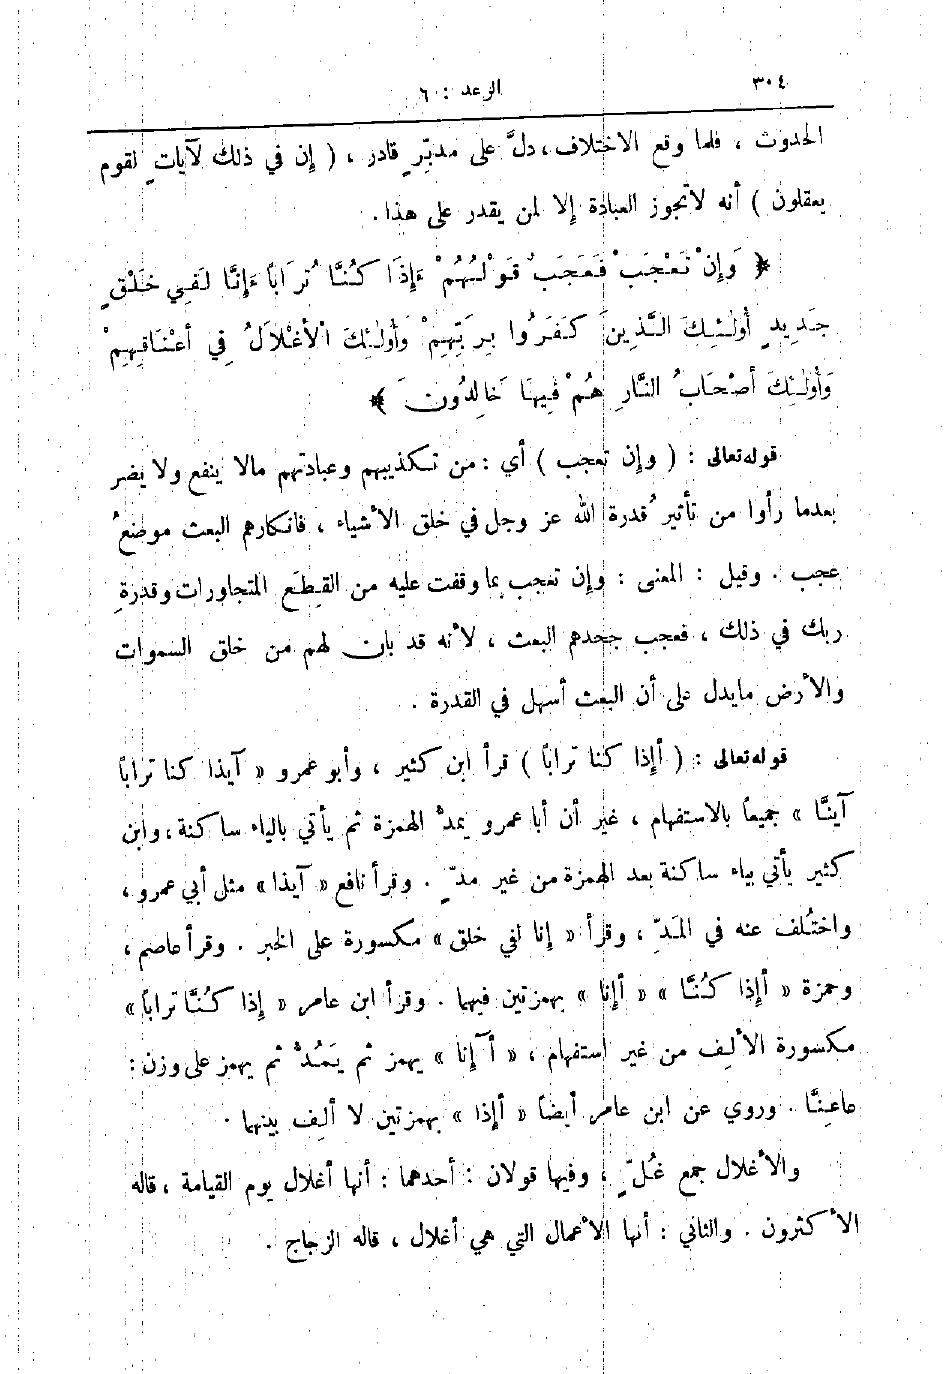 ٣٠٤
الرعد : ٦
الحدوث ، فلما وقع الاختلاف ، دلَّ على مدبِّرٍ قادر ، ( إن في ذلك لآياتٍ لقوم
يعقلون ) أنه لا تجوز العبادة إلا لمن يقدر على هذا .
﴿ وَإِنْ تَعْجَبْ فَعَجَبٌ قَوْلُهُمْ ءَإِذَا كُنَّا تُرَاباً ءَإِنَّا لَفِي خَلْقٍ
جَدِيدٍ أُولٰئِكَ الَّذِينَ كَفَرُوا بِرَبِّهِمْ وَأُولٰئِكَ الْأَغْلَالُ فِي أَعْنَاقِهِمْ
وَأُولٰئِكَ أَصْحَابُ النَّارِ هُمْ فِيهَا خَالِدُونَ ﴾
قوله تعالى : ( وإن تعجب ) أي : من تكذيبهم وعبادتهم مالا ينفع ولا يضر
بعدما رأوا من تأثير قُدرة الله عز وجل في خلق الأشياء ، فانكارهم البعث موضعُ
عجب . وقيل : المعنى : وإن تعجب بما وقفت عليه من القِطَع المتجاورات وقدرةِ
ربك في ذلك ، فعجب جحدهم البعث ، لأنه قد بان لهم من خلق السموات
والأرض مايدل على أن البعث أسهل في القدرة .
قوله تعالى : ( أإذا كنا تراباً ) قرأ ابن كثير ، وأبو عمرو « آيذا كنا تراباً
آينَّا » جميعاً بالاستفهام ، غير أن أبا عمرو يمدُّ الهمزة ثم يأتي بالياء ساكنة ، وابن
كثير يأتي بياء ساكنة بعد الهمزة من غير مدٍّ . وقرأ نافع « آيذا » مثل أبي عمرو ،
واختُلف عنه في المَدِّ ، وقرأ « إنا لفي خلق » مكسورة على الخبر . وقرأ عاصم ،
وحمزة « أإذا كُنَّا » « أإنا » بهمزتين فيهما . وقرأ ابن عامر « إذا كُنَّا تراباً »
مكسورة الألِف من غير استفهام ، « آإنا » يهمز ثم يَمُدُّ ثم يهمز على وزن :
عاعِنَّا . وروي عن ابن عامر أيضاً « أإذا » بهمزتين لا ألِف بينهما .
والأغلال جمع غُلٍّ ، وفيها قولان : أحدهما : أنها أغلال يوم القيامة ، قاله
الأكثرون . والثاني : أنها الأعمال التي هي أغلال ، قاله الزجاج .